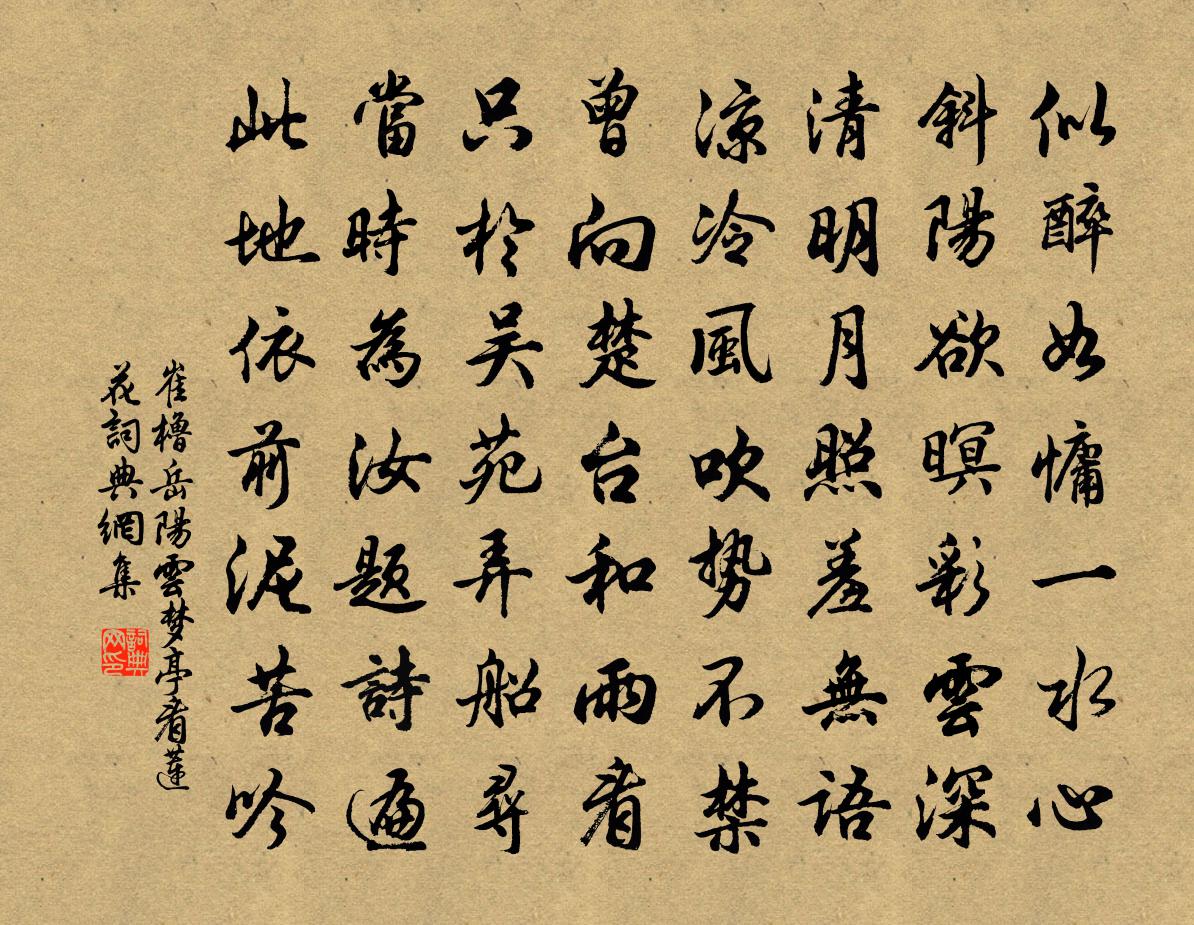 似醉如慵一水心
斜陽欲暝彩雲深
清明月照羞無語
涼冷風吹勢不禁
曾向楚台和雨看
只於吴苑弄船尋
當時為汝題詩遍
此地依前泥苦吟
崔櫓岳陽雲梦亭看蓮
花詞典網集
詞典
网印